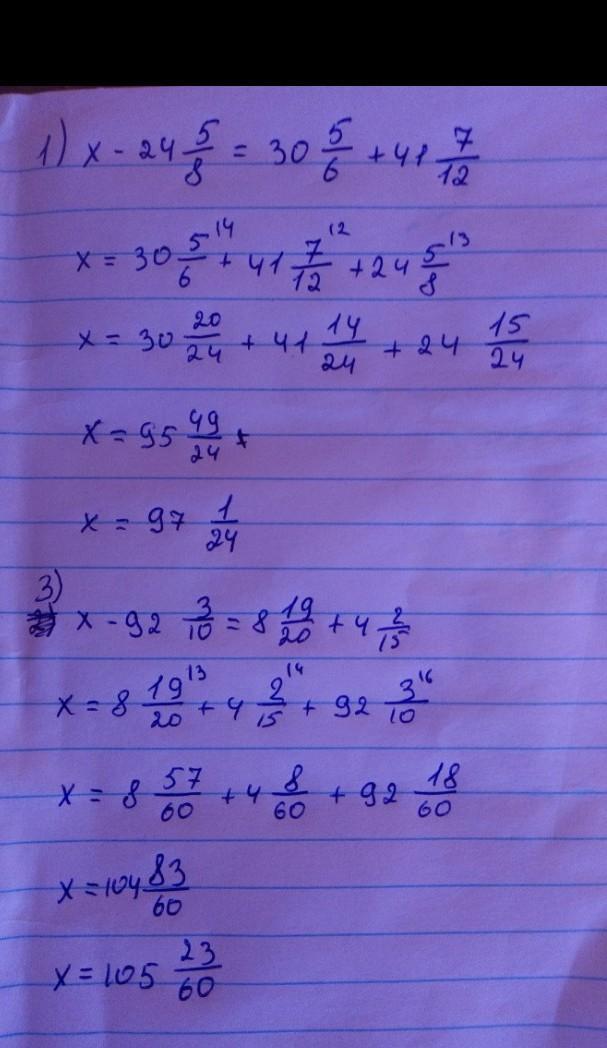 1) x - 24 5/8 = 30 5/6 + 41 7/12
x = 30 5/6 ^14 + 41 7/12 ^12 + 24 5/8 ^13
x = 30 20/24 + 41 14/24 + 24 15/24
x = 95 49/24
x = 97 1/24
3)
x - 92 3/10 = 8 19/20 + 4 2/15
x = 8 19/20 ^13 + 4 2/15 ^14 + 92 3/10 ^16
x = 8 57/60 + 4 8/60 + 92 18/60
x = 104 83/60
x = 105 23/60